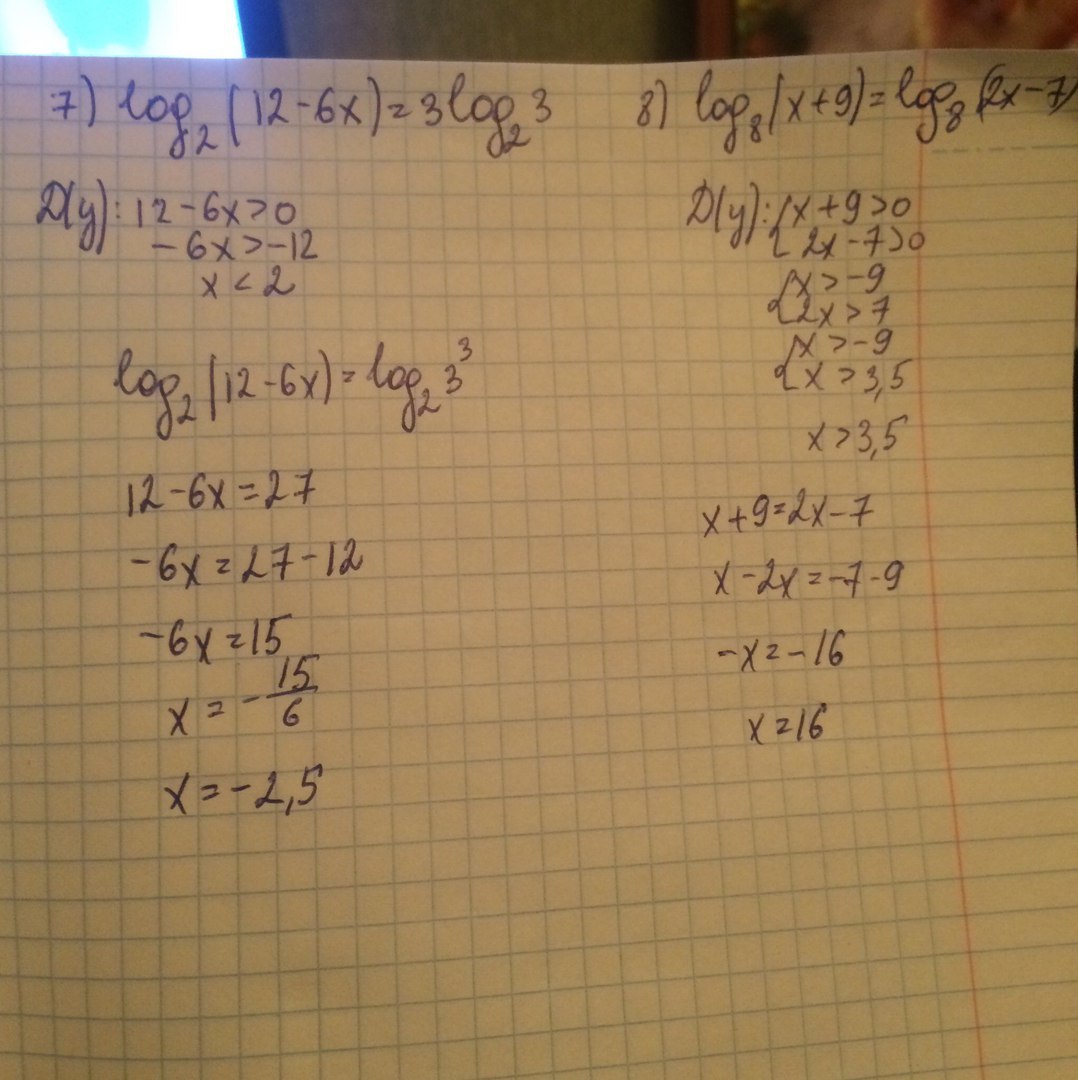 7) log₂(12-6x)=3log₂3
D(y): 12-6x>0
-6x>-12
x<2
log₂(12-6x)=log₂3³
12-6x=27
-6x=27-12
-6x=15
x=-15/6
x=-2,5
8) log₈(x+9)=log₈(2x-7)
D(y): {x+9>0
{2x-7>0
{x>-9
{2x>7
{x>-9
{x>3,5
x>3,5
x+9=2x-7
x-2x=-7-9
-x=-16
x=16